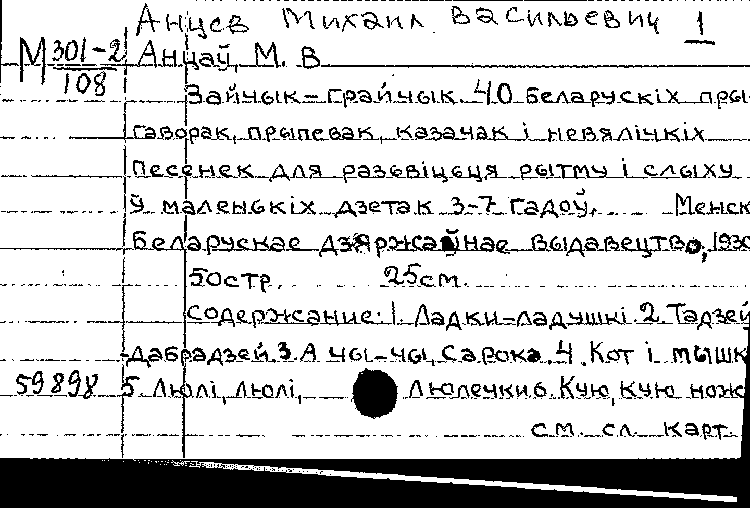 Анцев Михаил Васильевич 1
М 301-2/108 Анцаў, М. В
Зайчык-грайчык. 40 беларускіх пры-
гаворак, прыпевак, казачак і невялічкіх
песенек для разьвіцьця рытму і слыху
ў маленькіх дзетак 3-7 гадоў. Менск
Беларускае дзяржаўнае выдавецтво, 1930
50стр. 25см.
Содержание: 1. Ладки-ладушкі. 2. Тадзей
-дабрадзей. 3. А чы-чы, сарока. 4. Кот і мышк
59898 5. Люлі, люлі, Люлечки 6. Кую, кую нож
см. сл. карт.